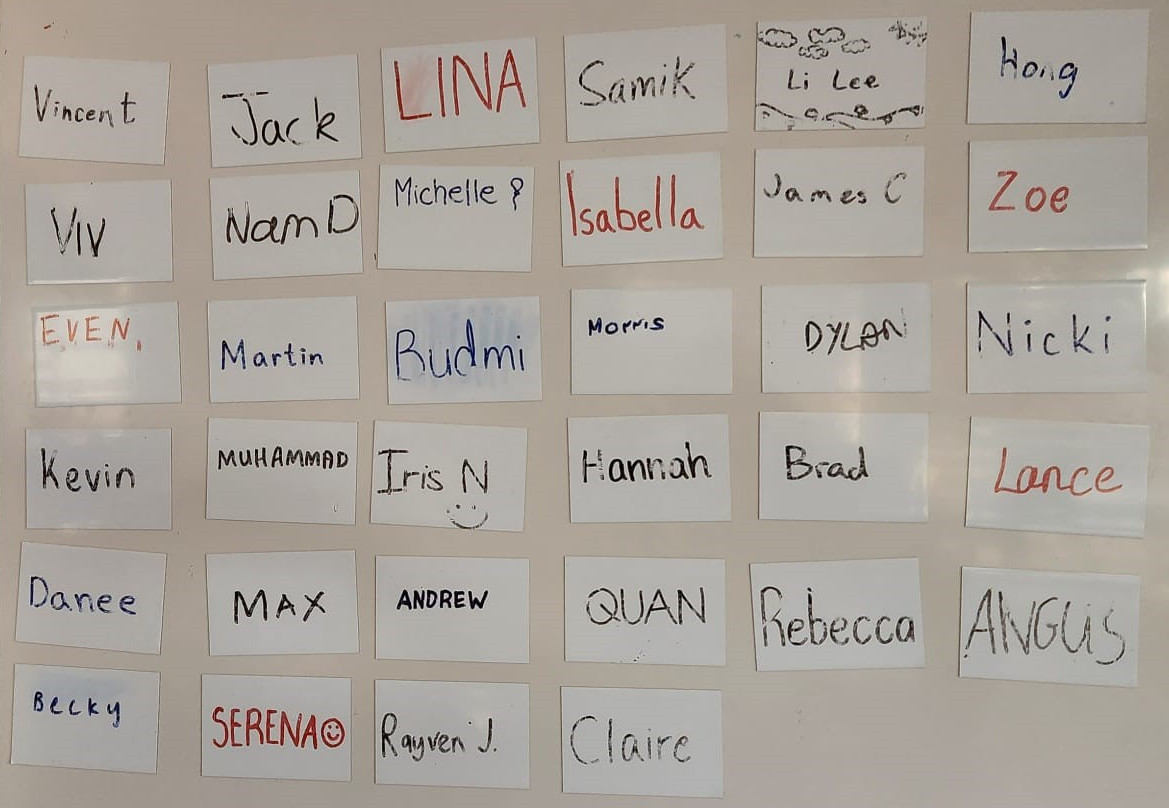 Vincent
Jack
LINA
Samik
Li Lee
Hong
Viv
Nam D
Michelle
Isabella
James C
Zoe
EVEN.
Martin
Budmi
Morris
DYLAN
Nicki
Kevin
MUHAMMAD
Iris N
Hannah
Brad
Lance
Danee
MAX
ANDREW
QUAN
Rebecca
ANGUS
Becky
SERENA☺
Rayven J.
Claire